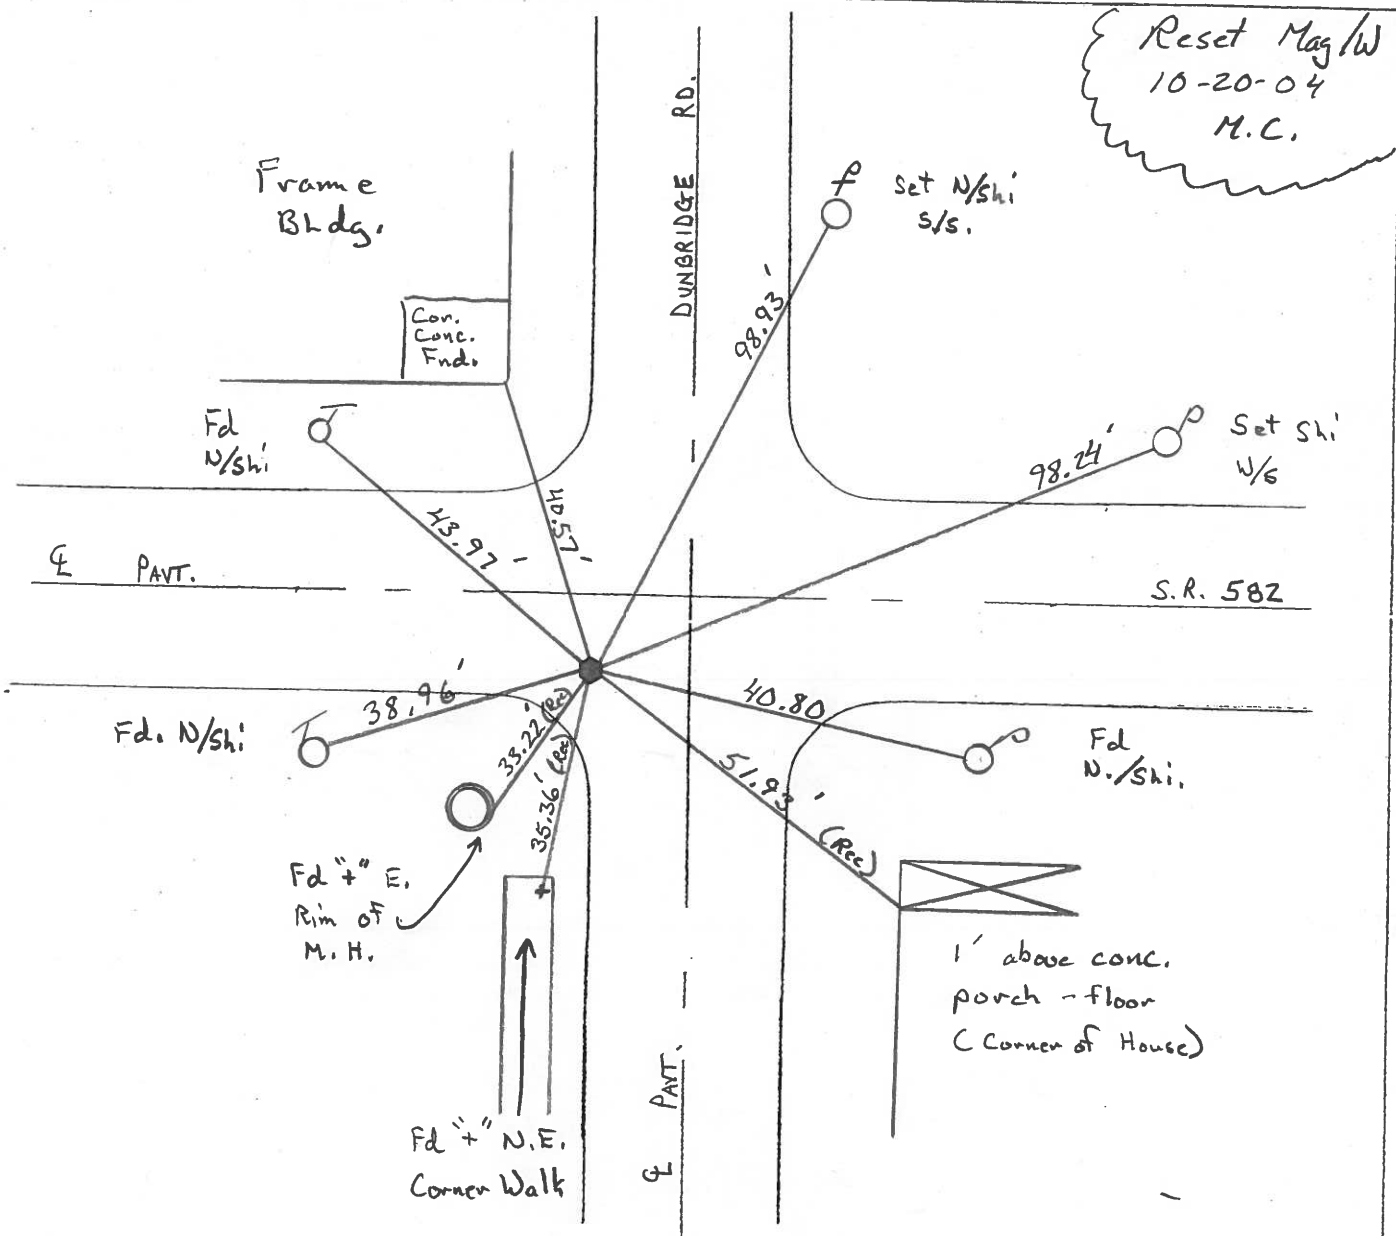 Reset Mag/W
10-20-04
M.C.
DUNBRIDGE RD.
Frame
BLdg.
Set N/Shi
S/S.
98.93'
Cor.
Conc.
Fnd.
Fd
N/Shi
Set Shi
W/S
98.24'
43.97'
40.57'
℄ PAVT.
S.R. 582
38.96'
Fd. N/Shi
33.22' (Rec)
35.36' (Rec)
40.80
51.93' (Rec)
Fd
N./Shi.
Fd "+" E.
Rim of
M.H.
1' above conc.
porch - floor
(Corner of House)
℄ PAVT.
Fd "+" N.E.
Corner Walk